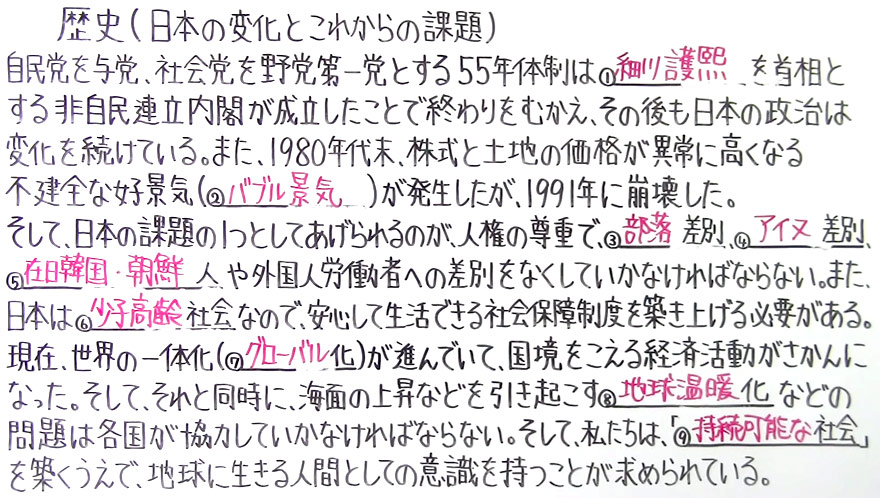 歴史(日本の変化とこれからの課題)
自民党を与党、社会党を野党第一党とする55年体制は①細川護熙を首相と
する非自民連立内閣が成立したことで終わりをむかえ、その後も日本の政治は
変化を続けている。また、1980年代末、株式と土地の価格が異常に高くなる
不健全な好景気(②バブル景気)が発生したが、1991年に崩壊した。
そして、日本の課題の1つとしてあげられるのが、人権の尊重で、③部落差別、④アイヌ差別、
⑤在日韓国・朝鮮人や外国人労働者への差別をなくしていかなければならない。また、
日本は⑥少子高齢社会なので、安心して生活できる社会保障制度を築き上げる必要がある。
現在、世界の一体化(⑦グローバル化)が進んでいて、国境をこえる経済活動がさかんに
なった。そして、それと同時に、海面の上昇などを引き起こす⑧地球温暖化などの
問題は各国が協力していかなければならない。そして、私たちは、「⑨持続可能な社会」
を築くうえで、地球に生きる人間としての意識を持つことが求められている。